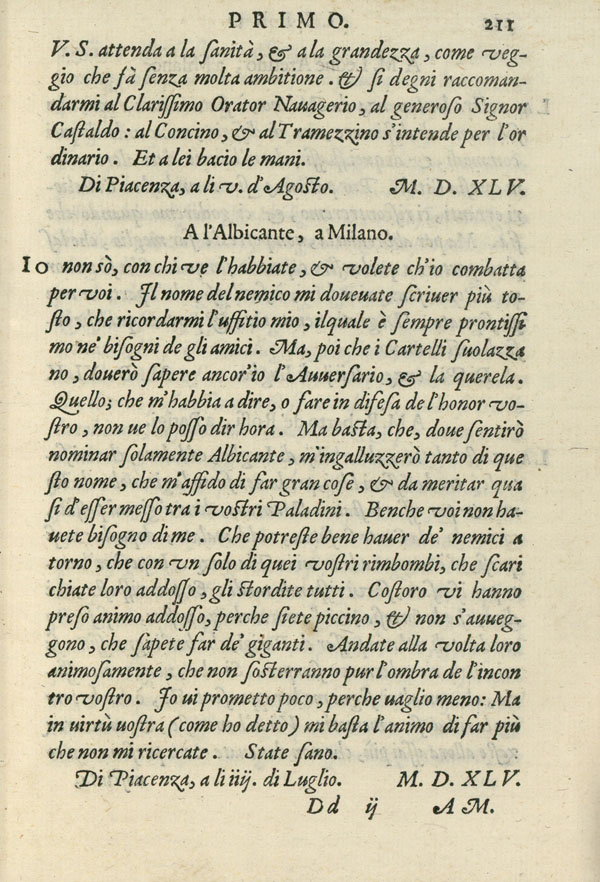 PRIMO. 211
V. S. attenda a la sanità, & a la grandezza, come veg-
gio che fà senza molta ambitione. & si degni raccoman-
darmi al Clarissimo Orator Nauagerio, al generoso Signor
Castaldo: al Concino, & al Tramezzino s'intende per l'or
dinario. Et a lei bacio le mani.
Di Piacenza, a li v. d'Agosto. M. D. XLV.
A l'Albicante, a Milano.
Io non sò, con chi ve l'habbiate, & volete ch'io combatta
per voi. Il nome del nemico mi doueuate scriuer più to-
sto, che ricordarmi l'uffitio mio, ilquale è sempre prontissi
mo ne' bisogni de gli amici. Ma, poi che i Cartelli suolazza
no, douerò sapere ancor'io l'Auuersario, & la querela.
Quello; che m'habbia a dire, o fare in difesa de l'honor vo-
stro, non ue lo posso dir hora. Ma basta, che, doue sentirò
nominar solamente Albicante, m'ingalluzzerò tanto di que
sto nome, che m'affido di far gran cose, & da meritar qua
si d'esser messo tra i vostri Paladini. Benche voi non ha-
uete bisogno di me. Che potreste bene hauer de' nemici a
torno, che con vn solo di quei vostri rimbombi, che scari
chiate loro addosso, gli stordite tutti. Costoro vi hanno
preso animo addosso, perche siete piccino, & non s'auueg-
gono, che sapete far de' giganti. Andate alla volta loro
animosamente, che non sosterranno pur l'ombra de l'incon
tro vostro. Io ui prometto poco, perche uaglio meno: Ma
in uirtù uostra (come ho detto) mi basta l'animo di far più
che non mi ricercate. State sano.
Di Piacenza, a li iiij. di Luglio. M. D. XLV.
Dd ij AM.